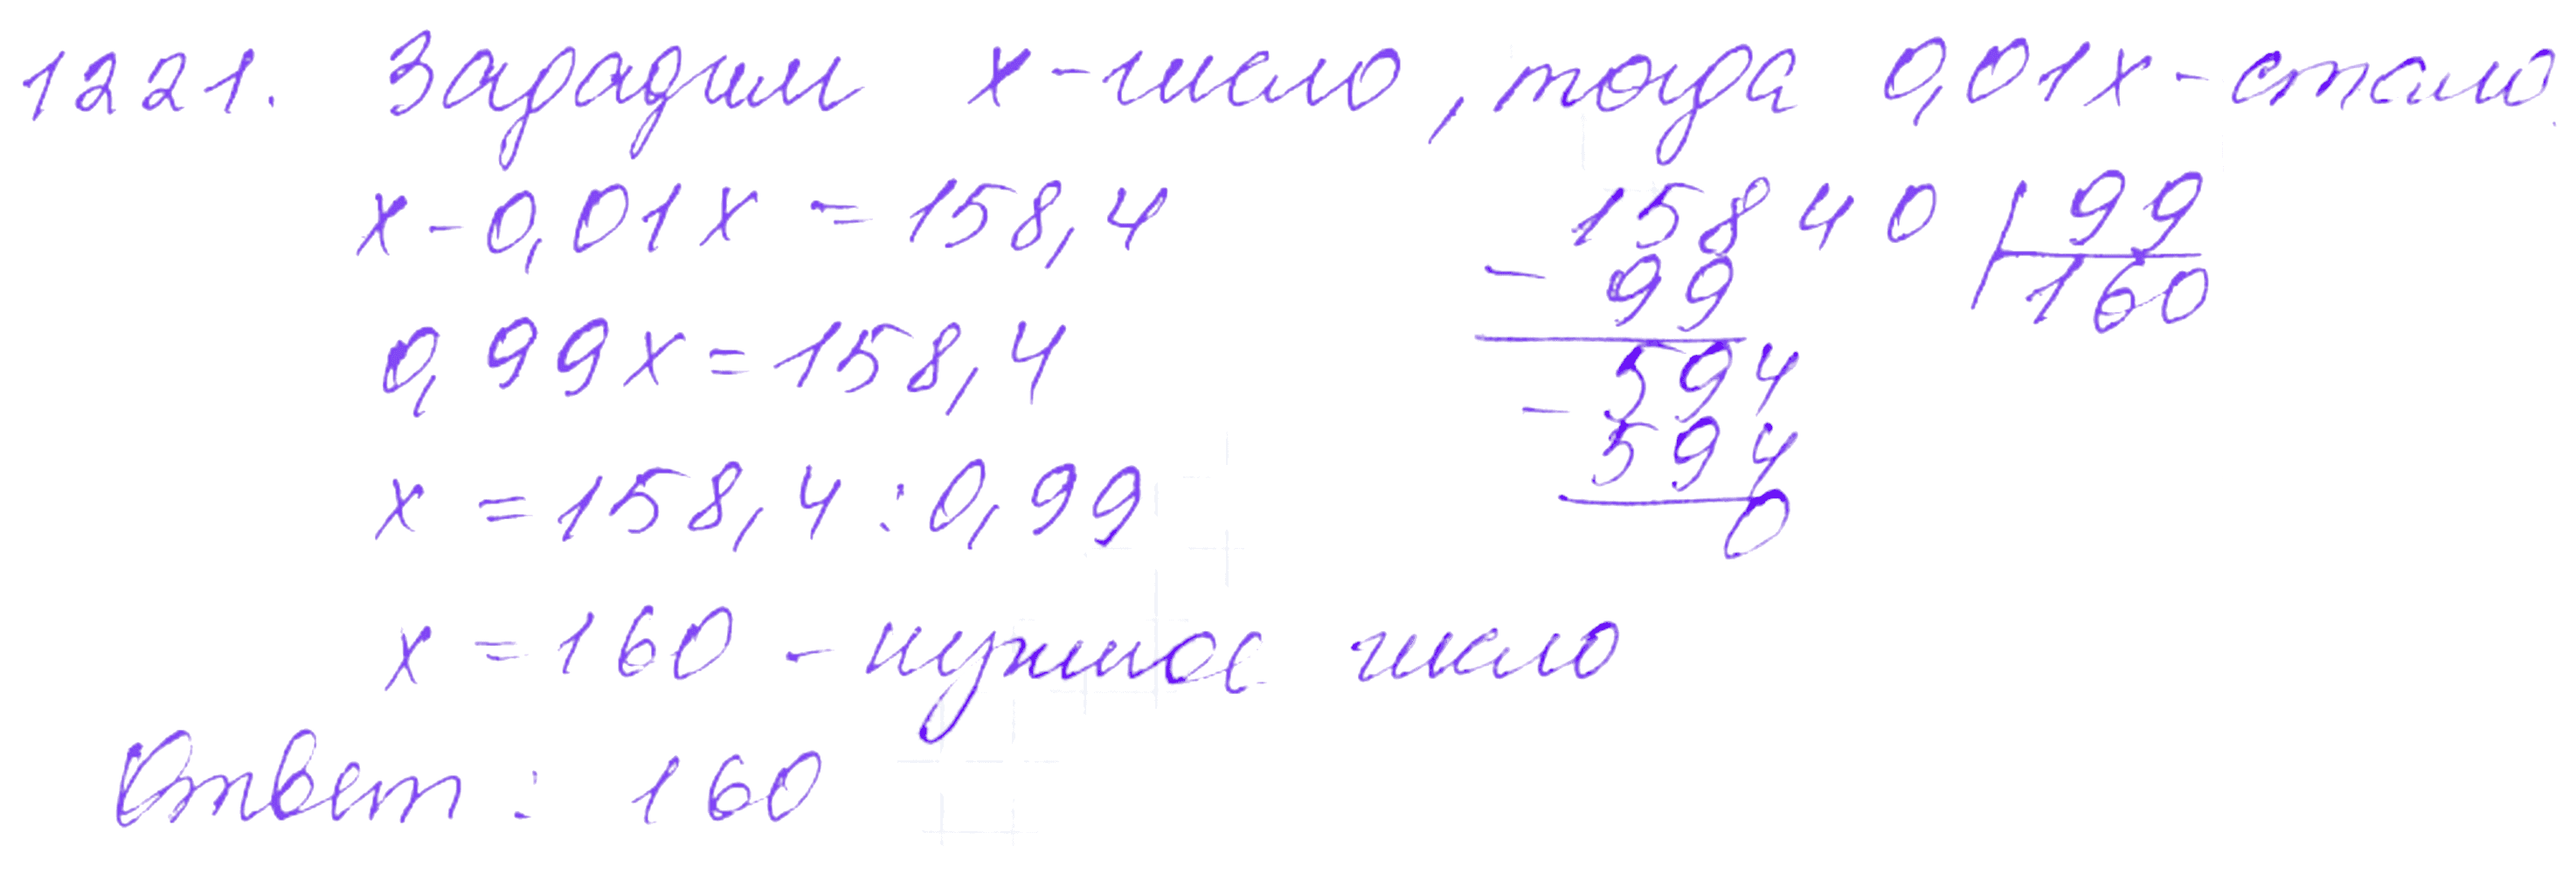 1221. Зададим x - число, тогда 0,01x - стало.
x - 0,01x = 158,4
0,99x = 158,4
x = 158,4 : 0,99
x = 160 - нужное число
Ответ: 160
15840 | 99
- 99 | 160
594
- 594
0